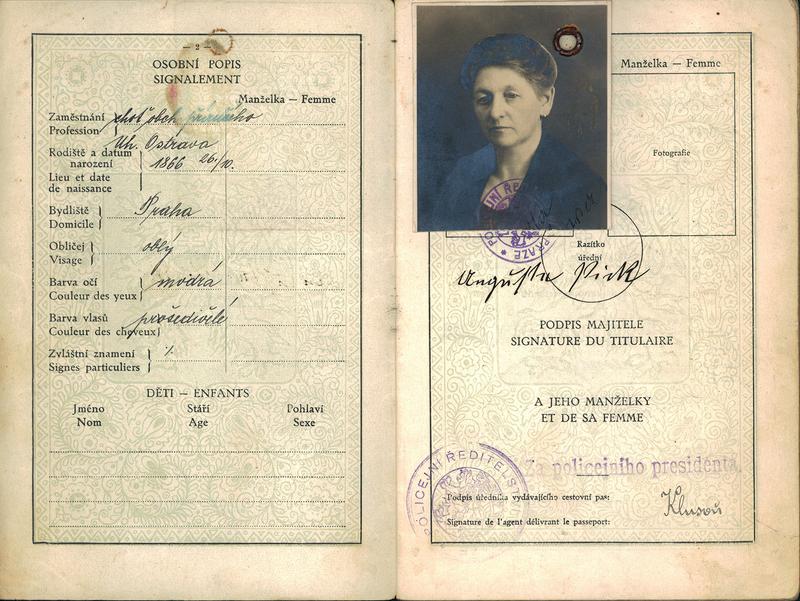 — 2 —
OSOBNÍ POPIS
SIGNALEMENT
Manželka — Femme
Zaměstnání
Profession
choť obch.
Uh. Ostrava
Rodiště a datum
narození
1866 26/10.
Lieu et date
de naissance
Bydliště
Domicile
Praha
Obličej
Visage
oblý
Barva očí
Couleur des yeux
modrá
Barva vlasů
Couleur des cheveux
prošedivělé
Zvláštní znamení
Signes particuliers
٪
DĚTI — ENFANTS
Jméno Stáří Pohlaví
Nom Age Sexe
Manželka — Femme
Fotografie
Razítko
úřední
Augusta Pick
PODPIS MAJITELE
SIGNATURE DU TITULAIRE
A JEHO MANŽELKY
ET DE SA FEMME
POLICEJNÍ ŘEDITELS
Za policejního presidenta
Podpis úředníka vydávajícího cestovní pas:
Signature de l'agent délivrant le passeport: